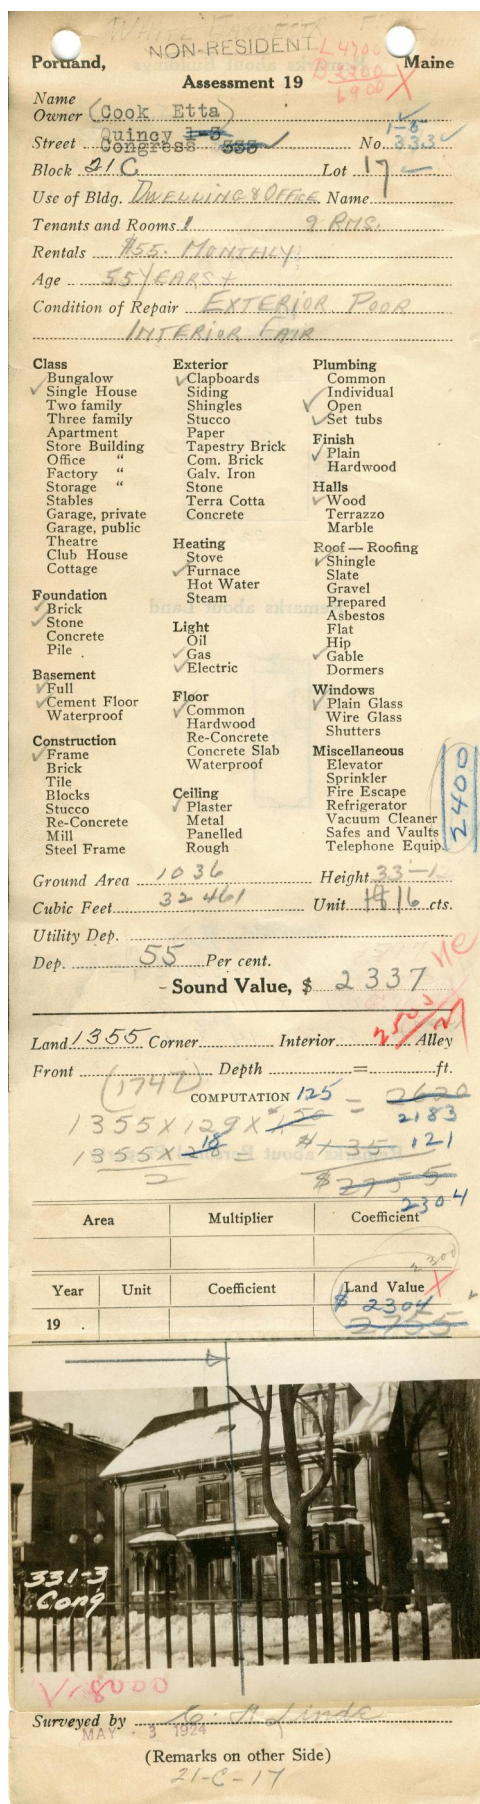 NON-RESIDENT
L4700
Portland, Maine
Assessment 19
6900 X
Name
Owner (Cook Etta)
Quincy 1-3 1-5
Street Congress 333 No. 333
Block 21 C Lot 17
Use of Bldg. DWELLING & OFFICE Name
Tenants and Rooms 1 9 RMS.
Rentals $55. MONTHLY.
Age 55 YEARS +
Condition of Repair EXTERIOR POOR
INTERIOR FAIR
Class
Bungalow
Single House
Two family
Three family
Apartment
Store Building
Office "
Factory "
Storage "
Stables
Garage, private
Garage, public
Theatre
Club House
Cottage
Foundation
Brick
Stone
Concrete
Pile
Basement
Full
Cement Floor
Waterproof
Construction
Frame
Brick
Tile
Blocks
Stucco
Re-Concrete
Mill
Steel Frame
Exterior
Clapboards
Siding
Shingles
Stucco
Paper
Tapestry Brick
Com. Brick
Galv. Iron
Stone
Terra Cotta
Concrete
Heating
Stove
Furnace
Hot Water
Steam
Light
Oil
Gas
Electric
Floor
Common
Hardwood
Re-Concrete
Concrete Slab
Waterproof
Ceiling
Plaster
Metal
Panelled
Rough
Plumbing
Common
Individual
Open
Set tubs
Finish
Plain
Hardwood
Halls
Wood
Terrazzo
Marble
Roof — Roofing
Shingle
Slate
Gravel
Prepared
Asbestos
Flat
Hip
Gable
Dormers
Windows
Plain Glass
Wire Glass
Shutters
Miscellaneous
Elevator
Sprinkler
Fire Escape
Refrigerator
Vacuum Cleaner
Safes and Vaults
Telephone Equip.
2400
Ground Area 1036 Height 33-1
Cubic Feet 32461 Unit 16 cts.
Utility Dep.
Dep. 55 Per cent.
Sound Value, $ 2337
2500
Land 1355 Corner Interior Alley
Front Depth = ft.
(1747)
COMPUTATION 125 2620
1355 X 129 X 150 = 2183
18
1355 X = $135 121
2 $2755
2304
Area Multiplier Coefficient
2300
Year Unit Coefficient Land Value X
$ 2304
19 . 2755
331-3
Cong
Surveyed by
MAY - 3 1924
(Remarks on other Side)
21-C-17